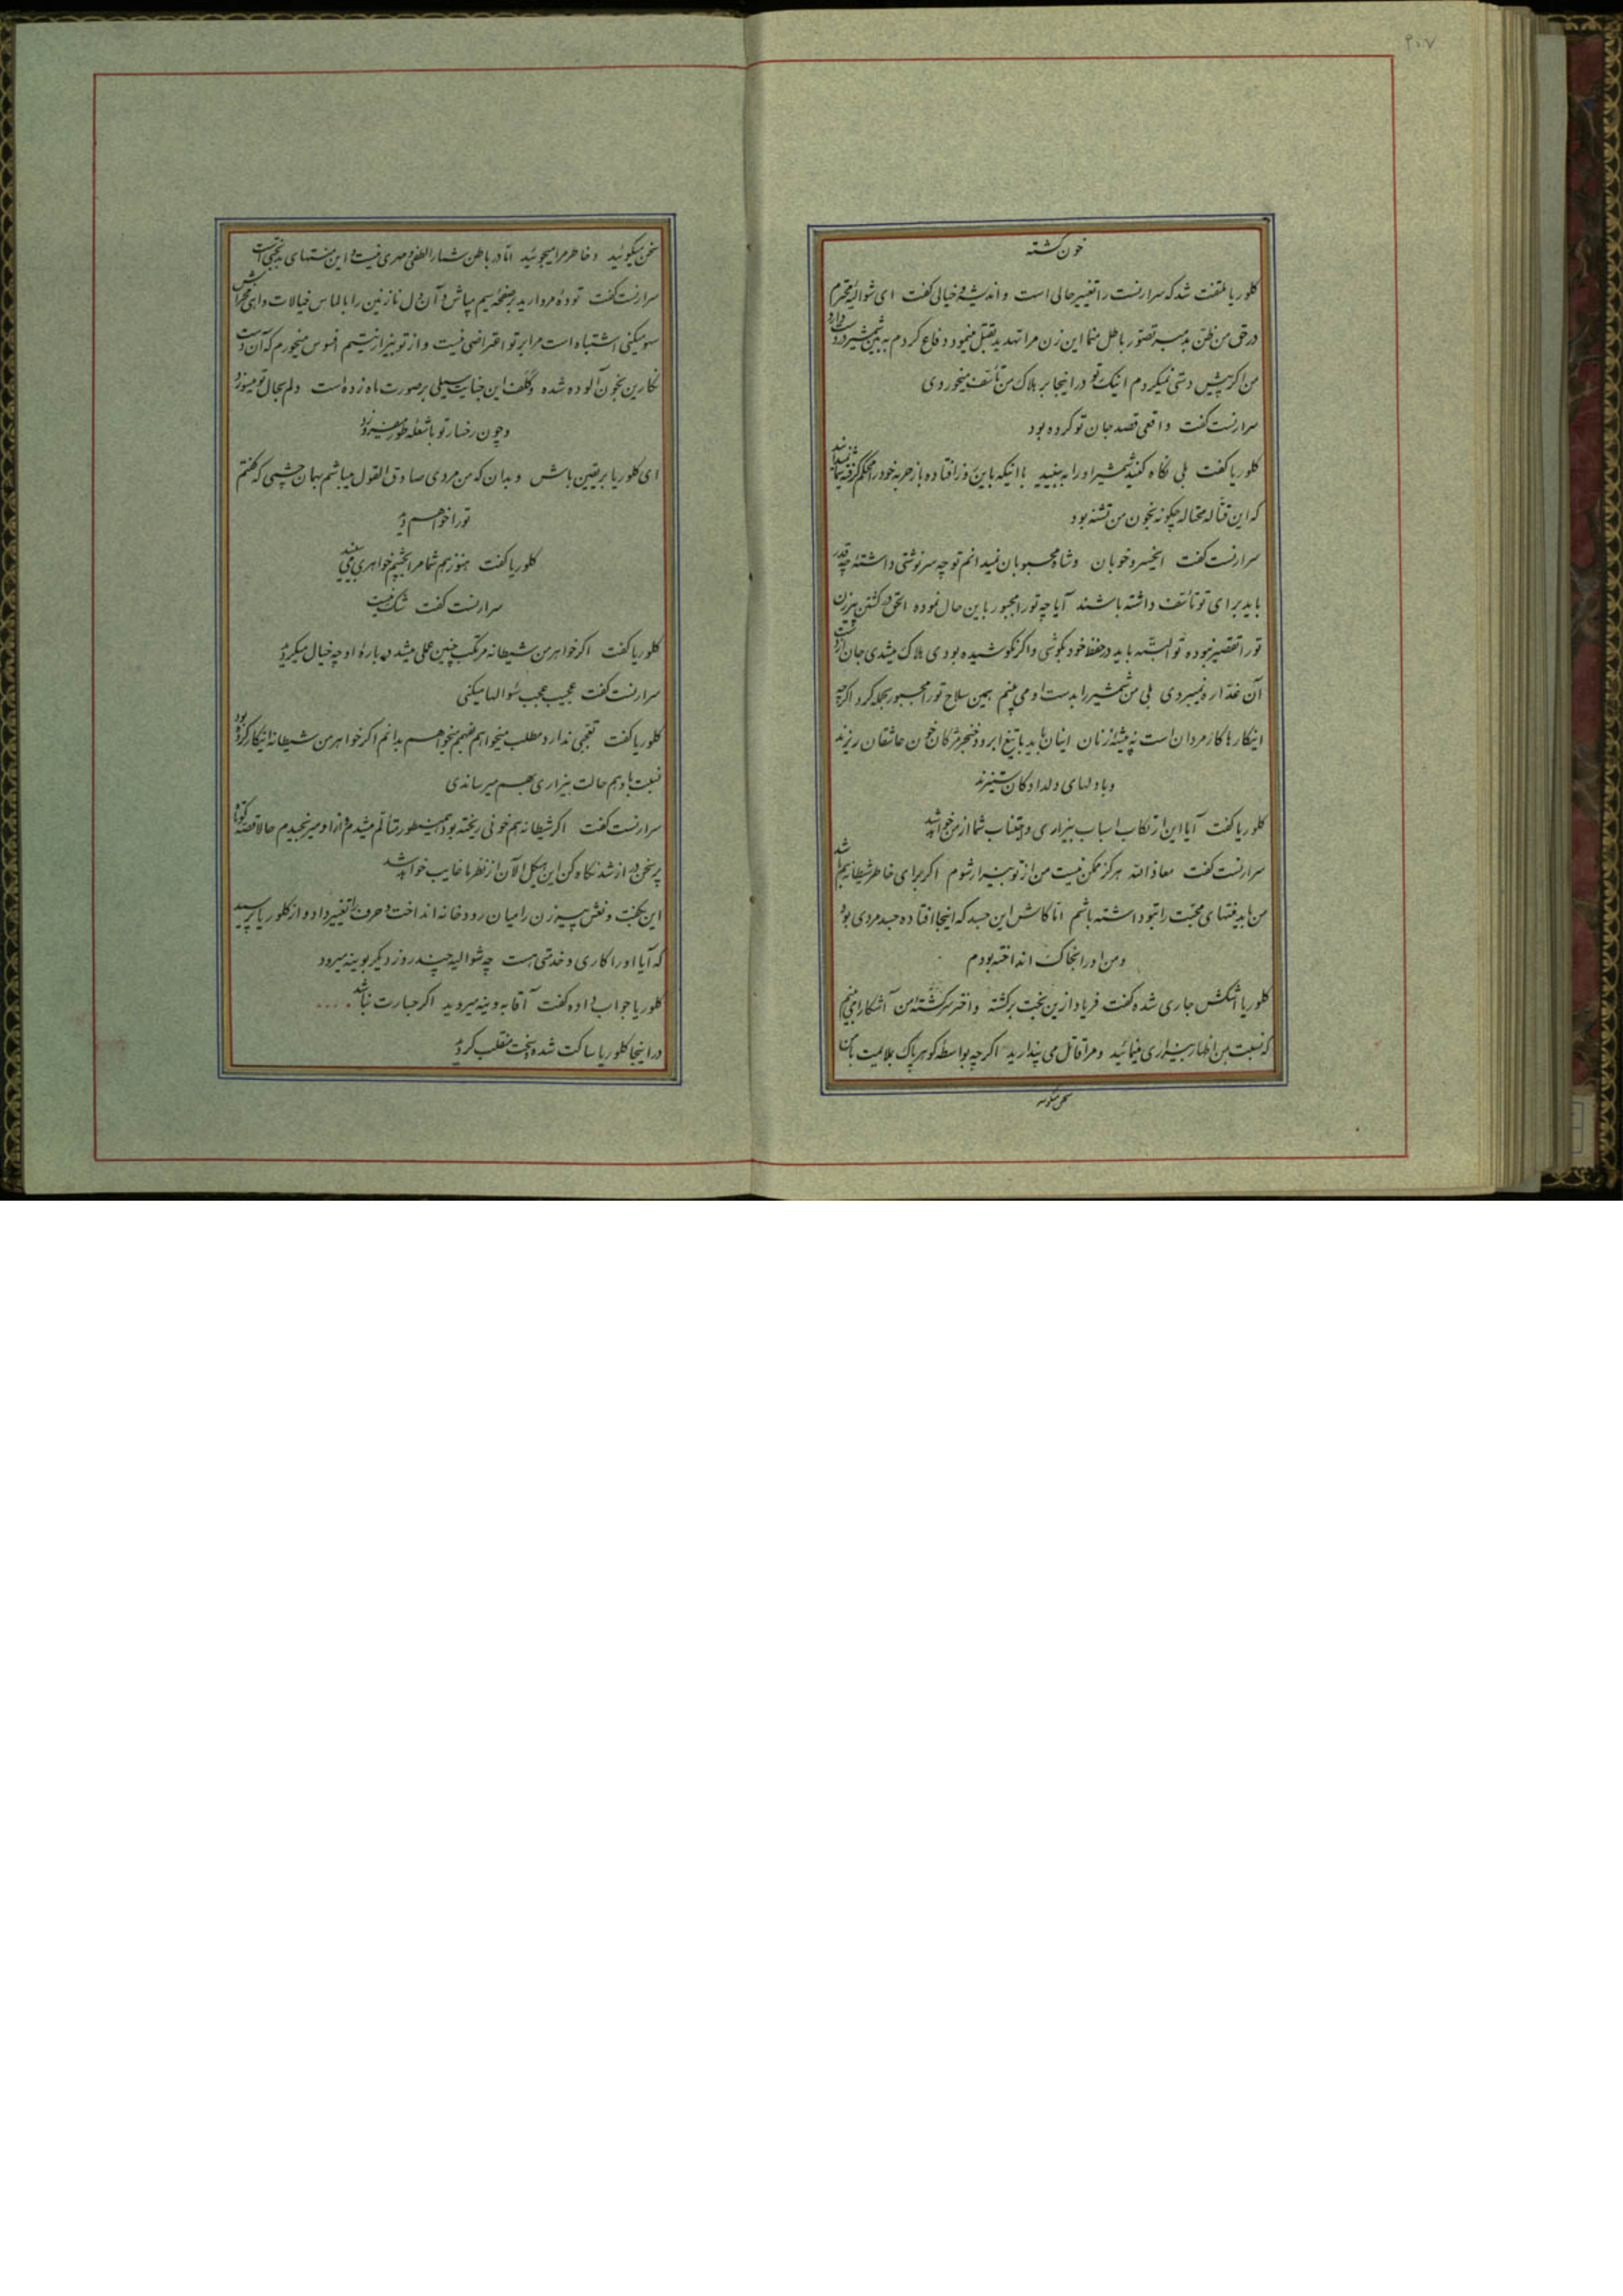 ۲۰۷
خون کشته
کلوریا ملتفت شد که سرارنست را تغییر حالی است و اندیشه و خیالی گفت ای شوالیهٔ محترم
در حق من ظن بد مبر تصور باطل منما این زن مرا تهدید بقتل مینمود دفاع کردم به بین شمشیر در دست دارد
من اگر پیش دستی نمیکردم اینک تو در اینجا بر هلاک من تأسف میخوردی
سرارنست گفت واقعی قصد جان تو کرده بود
کلوریا گفت بلی نگاه کنید شمشیر او را به بینید با اینکه باین روز افتاده باز حربه خود را محکم گرفته
که این قتاله محتاله چگونه بخون من تشنه بود
سرارنست گفت ایخسرو خوبان و شاه محبوبان نمیدانم تو چه سرنوشتی داشتهٔ چه قدر
باید برای تو تأسف داشته باشند آیا چه تو را مجبور باین حال نموده الحق در کشتن پیرزن
تو را تقصیر نبوده تو البته باید در حفظ خود بکوشی و اگر نکوشیده بودی هلاک میشدی جان از دست
آن غداره نمیبردی بلی من شمشیر را بدست او می بینم همین سلاح تو را مجبور بحمله کرد اگرچه
اینکارها کار مردان است نه پیشهٔ زنان اینان باید با تیغ ابرو و خنجر مژگان خون عاشقان ریزند
و با دلهای دلدادگان ستیزند
کلوریا گفت آیا این ارتکاب اسباب بیزاری و اجتناب شما از من خواهد شد
سرارنست گفت معاذ الله هرگز ممکن نیست من از تو بیزار شوم اگر برای خاطر شیطانه هم باشد
من باید منتهای محبت را بتو داشته باشم اما کاش این جسد که اینجا افتاده جسد مردی بود
و من او را بخاک انداخته بودم
کلوریا اشکش جاری شده گفت فریاد از این بخت برگشته و اختر سرگشته من آشکارا می بینم
که نسبت بمن اظهار بیزاری مینمائید و مرا قاتل می پندارید اگرچه بواسطه گوهر پاک بملایمت با من
سخن میگوئید
سخن میگوئید و خاطر مرا میجوئید اما در باطن شما را لطفی و مهری نیست و این منتهای بدبختی است
سرارنست گفت تودهٔ مروارید بر صفحهٔ سیم مپاش و آن دل نازنین را با الماس خیالات واهی مخراش
سهو میکنی اشتباه است مرا بر تو اعتراضی نیست و از تو بیزار نیستم افسوس میخورم که آن دست
نگارین بخون آلوده شده و کلف این جنایت سیلی بر صورت ماه زده است دلم بحال تو میسوزد
و چون رخسار تو با شعله طور میفروزد
ای کلوریا بر یقین باش و بدان که من مردی صادق القول میباشم بهمان چشمی که گفتم
تو را خواهم دید
کلوریا گفت هنوز هم شما مرا بچشم خواهری می بینید
سرارنست گفت شک نیست
کلوریا گفت اگر خواهر من شیطانه مرتکب چنین عملی میشد در بارهٔ او چه خیال میکردید
سرارنست گفت عجیب عجب سئوالها میکنی
کلوریا گفت تعجبی ندارد مطلب میخواهم بفهم میخواهم بدانم اگر خواهر من شیطانه اینکار کرده بود
نسبت باو هم حالت بیزاری بهم میرساندی
سرارنست گفت اگر شیطانه هم خونی ریخته بود همینطور متألم میشدم و از او میرنجیدم حالا قصه کوتاه
پر سخن دراز شد نگاه کن این هیکل الآن از نظر ما غایب خواهد شد
این بگفت و نعش پیرزن را میان رودخانه انداخت و حرف را تغییر داد و از کلوریا پرسید
که آیا او را کاری و خدمتی هست چه شوالیه چند روز دیگر بوینه میرود
کلوریا جواب داده گفت آقا به وینه میروید اگر جسارت نباشد ....
در اینجا کلوریا ساکت شده سخت منقلب گردید